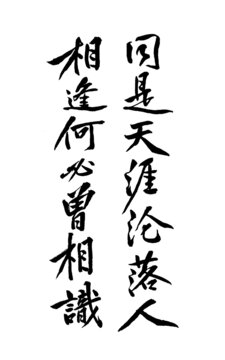 同是天涯沦落人
相逢何必曾相識